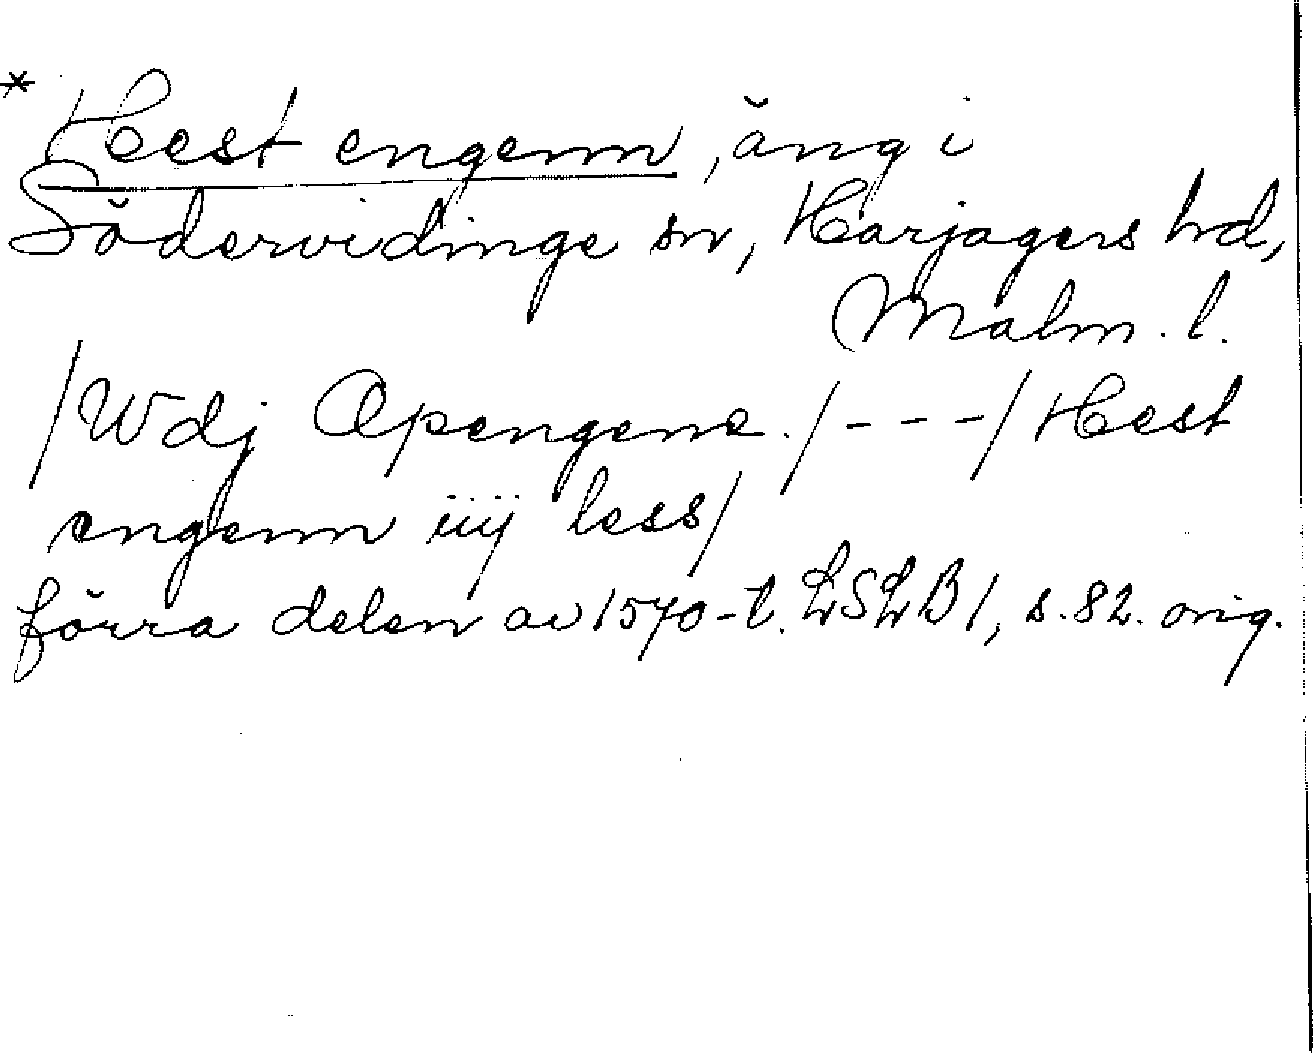 * Hest engenn, äng i
Södervidinge sn, Harjagers hd,
Malm. l.
/Wdj Apengene./---/Hest
engenn iiij less/
förra delen av 1570-t. LSLB1, s. 82. orig.